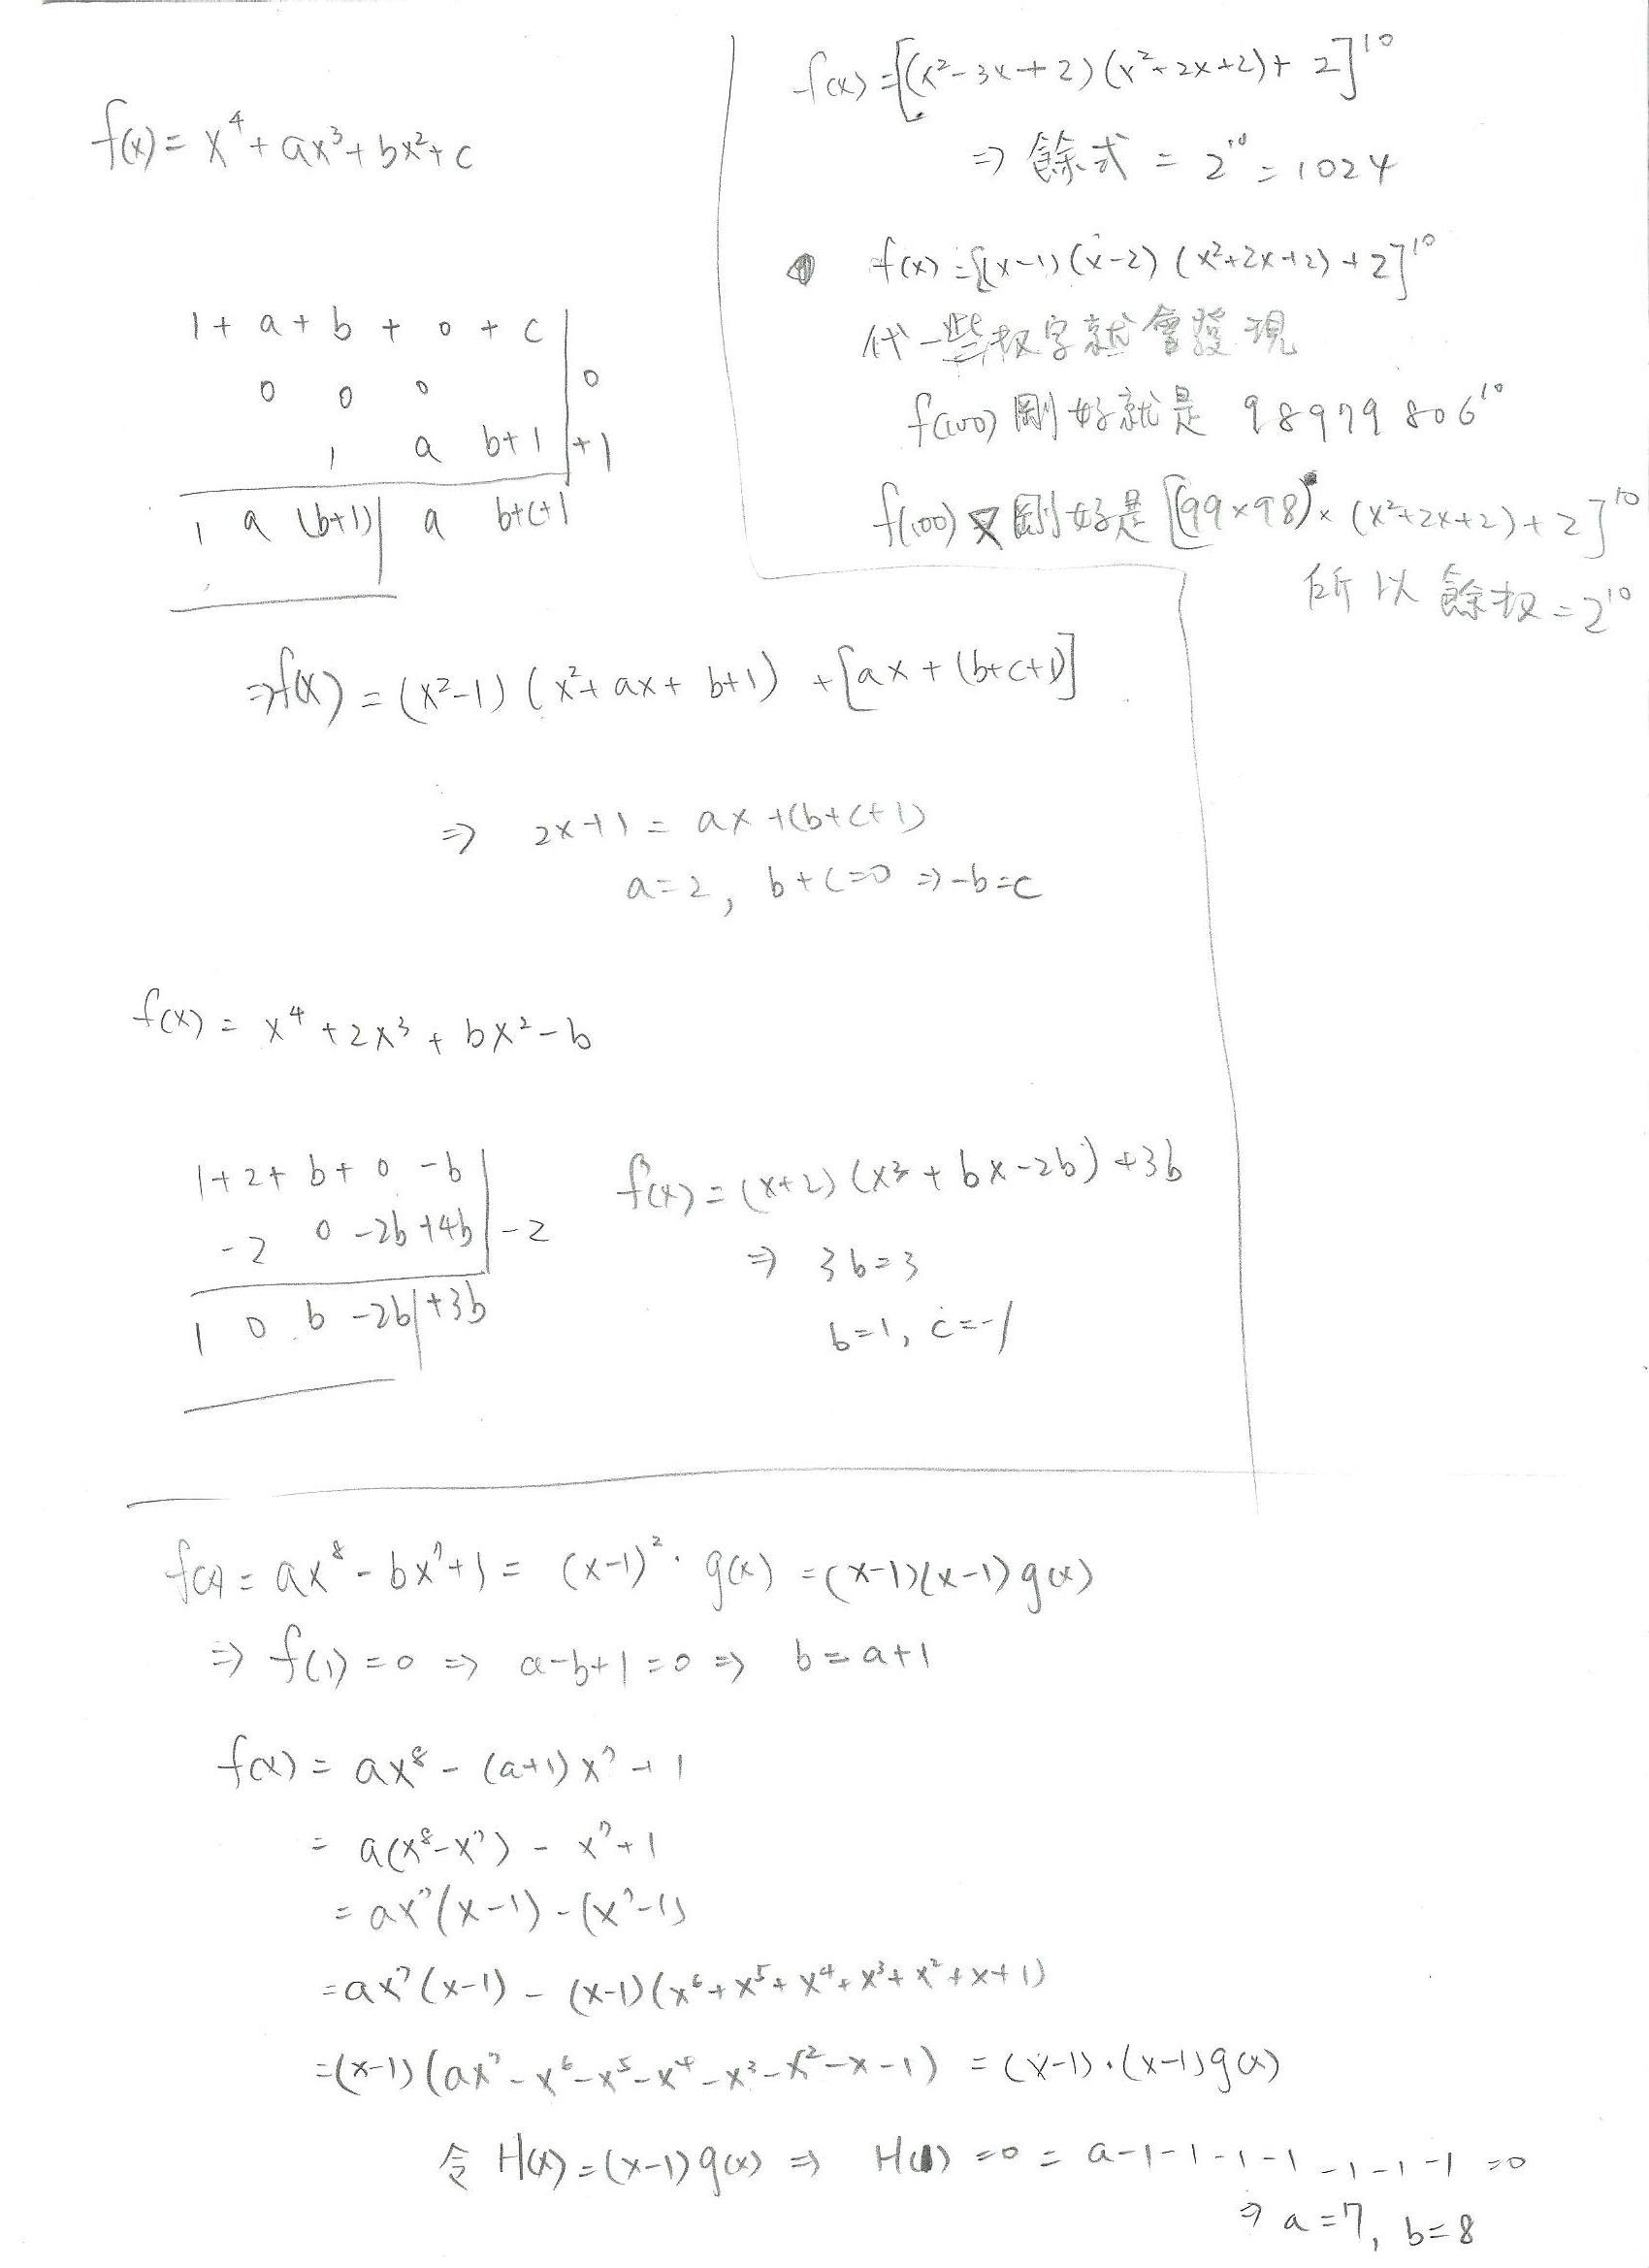 f(x) = x⁴ + ax³ + bx² + c
1 + a + b + 0 + c
0 0 0 | 0
1 a b+1 | +1
1 a (b+1) | a b+c+1
⇒ f(x) = (x²-1)(x²+ax+b+1) + [ax+(b+c+1)]
⇒ 2x+1 = ax+(b+c+1)
a=2, b+c=0 ⇒ -b=c
f(x) = x⁴+2x³+bx²-b
1+2+b+0 -b
-2 0 -2b +4b | -2
1 0 b -2b | +3b
f(x) = (x+2)(x³+bx-2b)+3b
⇒ 3b=3
b=1, c=-1
f(x) = [(x²-3x+2)(x²+2x+2)+2]¹⁰
⇒ 餘式 = 2¹⁰ = 1024
f(x) = [(x-1)(x-2)(x²+2x+2)+2]¹⁰
代一些数字就會發現
f(100) 剛好就是 98979806¹⁰
f(100) 又剛好是 [(99×98)×(x²+2x+2)+2]¹⁰
所以餘数=2¹⁰
f(x) = ax⁸-bx⁷+1 = (x-1)²·g(x) = (x-1)(x-1)g(x)
⇒ f(1)=0 ⇒ a-b+1=0 ⇒ b=a+1
f(x) = ax⁸-(a+1)x⁷+1
= a(x⁸-x⁷)-x⁷+1
= ax⁷(x-1)-(x⁷-1)
= ax⁷(x-1)-(x-1)(x⁶+x⁵+x⁴+x³+x²+x+1)
= (x-1)(ax⁷-x⁶-x⁵-x⁴-x³-x²-x-1) = (x-1)·(x-1)g(x)
令 H(x)=(x-1)g(x) ⇒ H(1)=0 = a-1-1-1-1-1-1-1=0
⇒ a=7, b=8